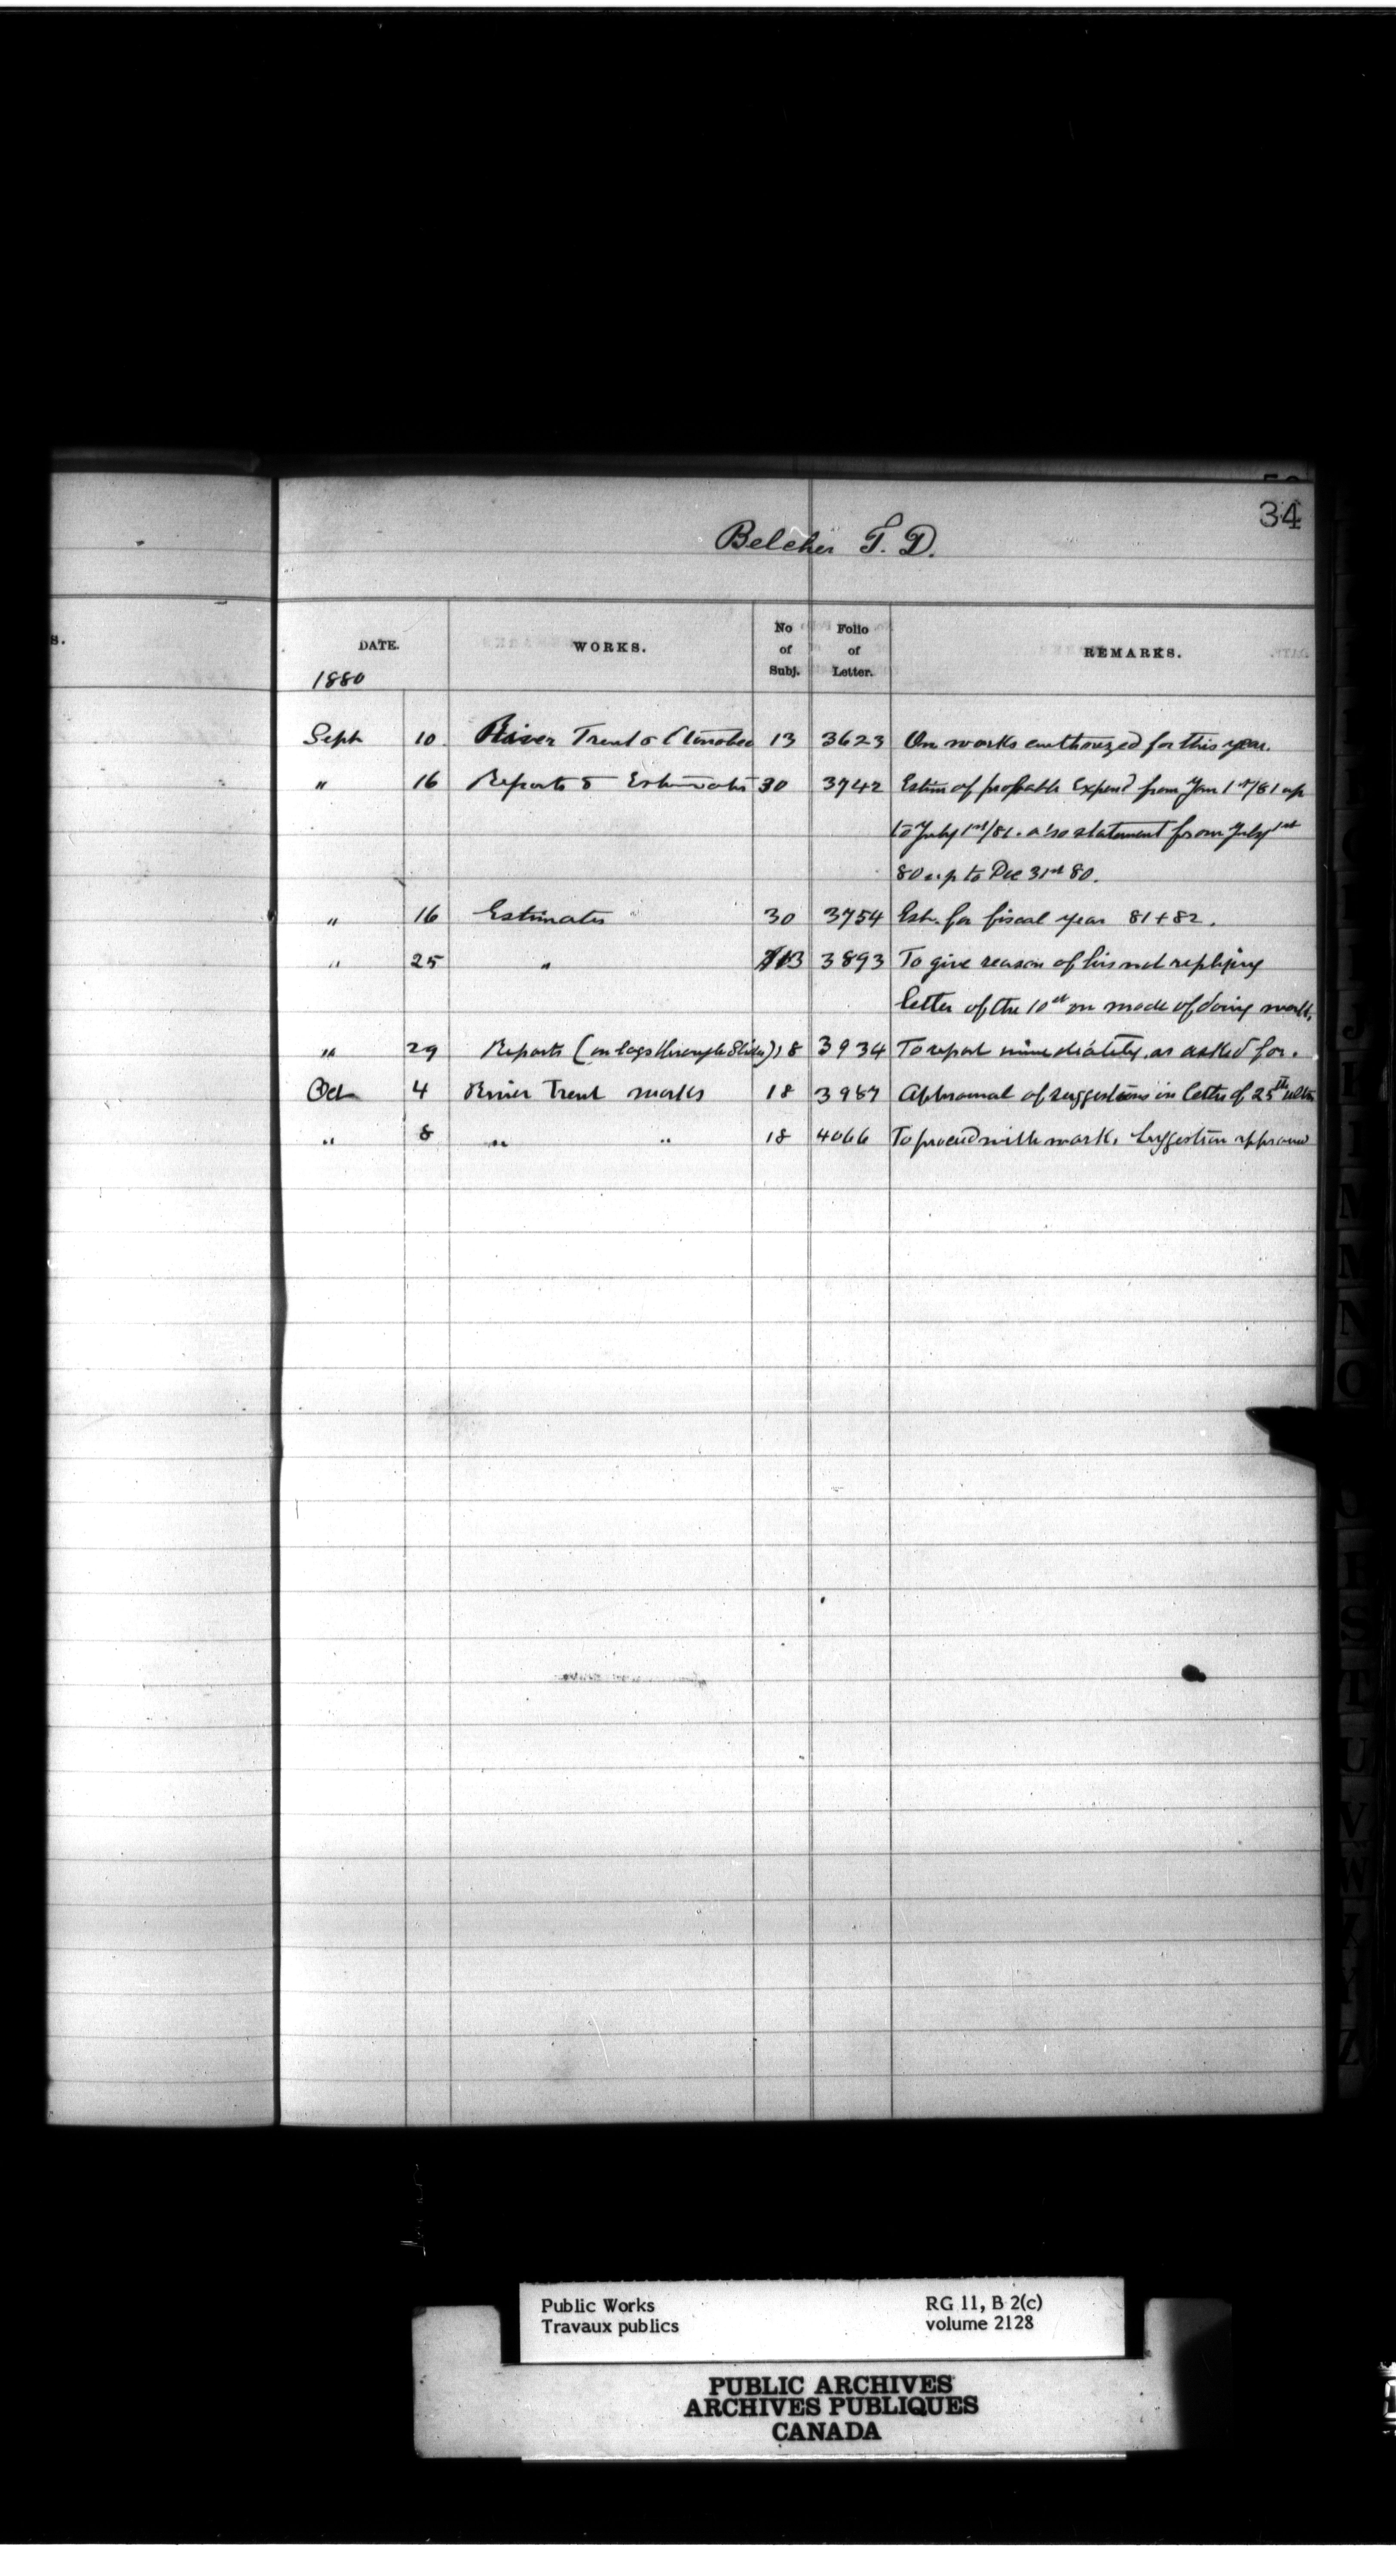 34
Belcher T. D.
S.
DATE. WORKS. No of Subj. Folio of Letter. REMARKS.
1880
Sept 10 River Trent & 13 3623 On works authorized for this year.
" 16 Reports & Estimates 30 3742 Estim of probable Expend from Jan 1st/81 up
to July 1st/81. also statement from July 1st
80 up to Dec 31st 80.
" 16 Estimates 30 3754 Est. for fiscal year 81+82.
" 25 " 13 3893 To give reason of his not replying
letter of the 10th on mode of doing work.
" 29 Reports (on logs through Slides) 18 3934 To report immediately, as asked for.
Oct 4 River Trent works 18 3987 Approval of suggestions in letter of 25th ulto
" 8 " " 18 4066 To proceed with work. Suggestion approved
Public Works
Travaux publics
RG 11, B 2(c)
volume 2128
PUBLIC ARCHIVES
ARCHIVES PUBLIQUES
CANADA